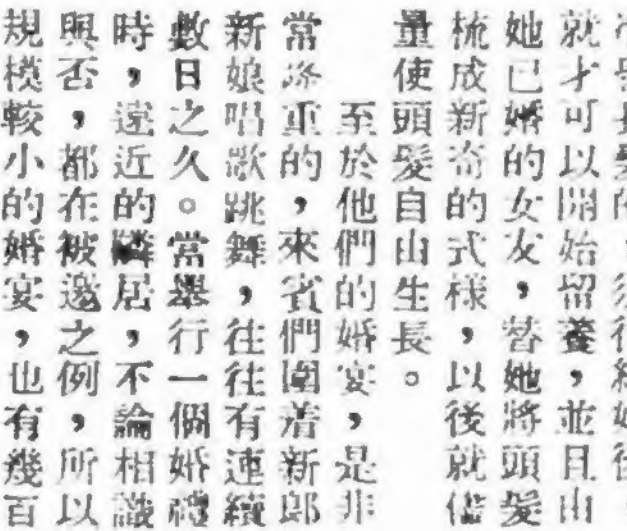 就才可以開始留養，並且由
她已婚的女友，替她將頭髮
梳成新奇的式樣，以後就儘
量使頭髮自由生長。
至於他們的婚宴，是非
常隆重的，來賓們圍着新郎
新娘唱歌跳舞，往往有連續
數日之久。當舉行一個婚禮
時，遠近的隣居，不論相識
與否，都在被邀之例，所以
規模較小的婚宴，也有幾百